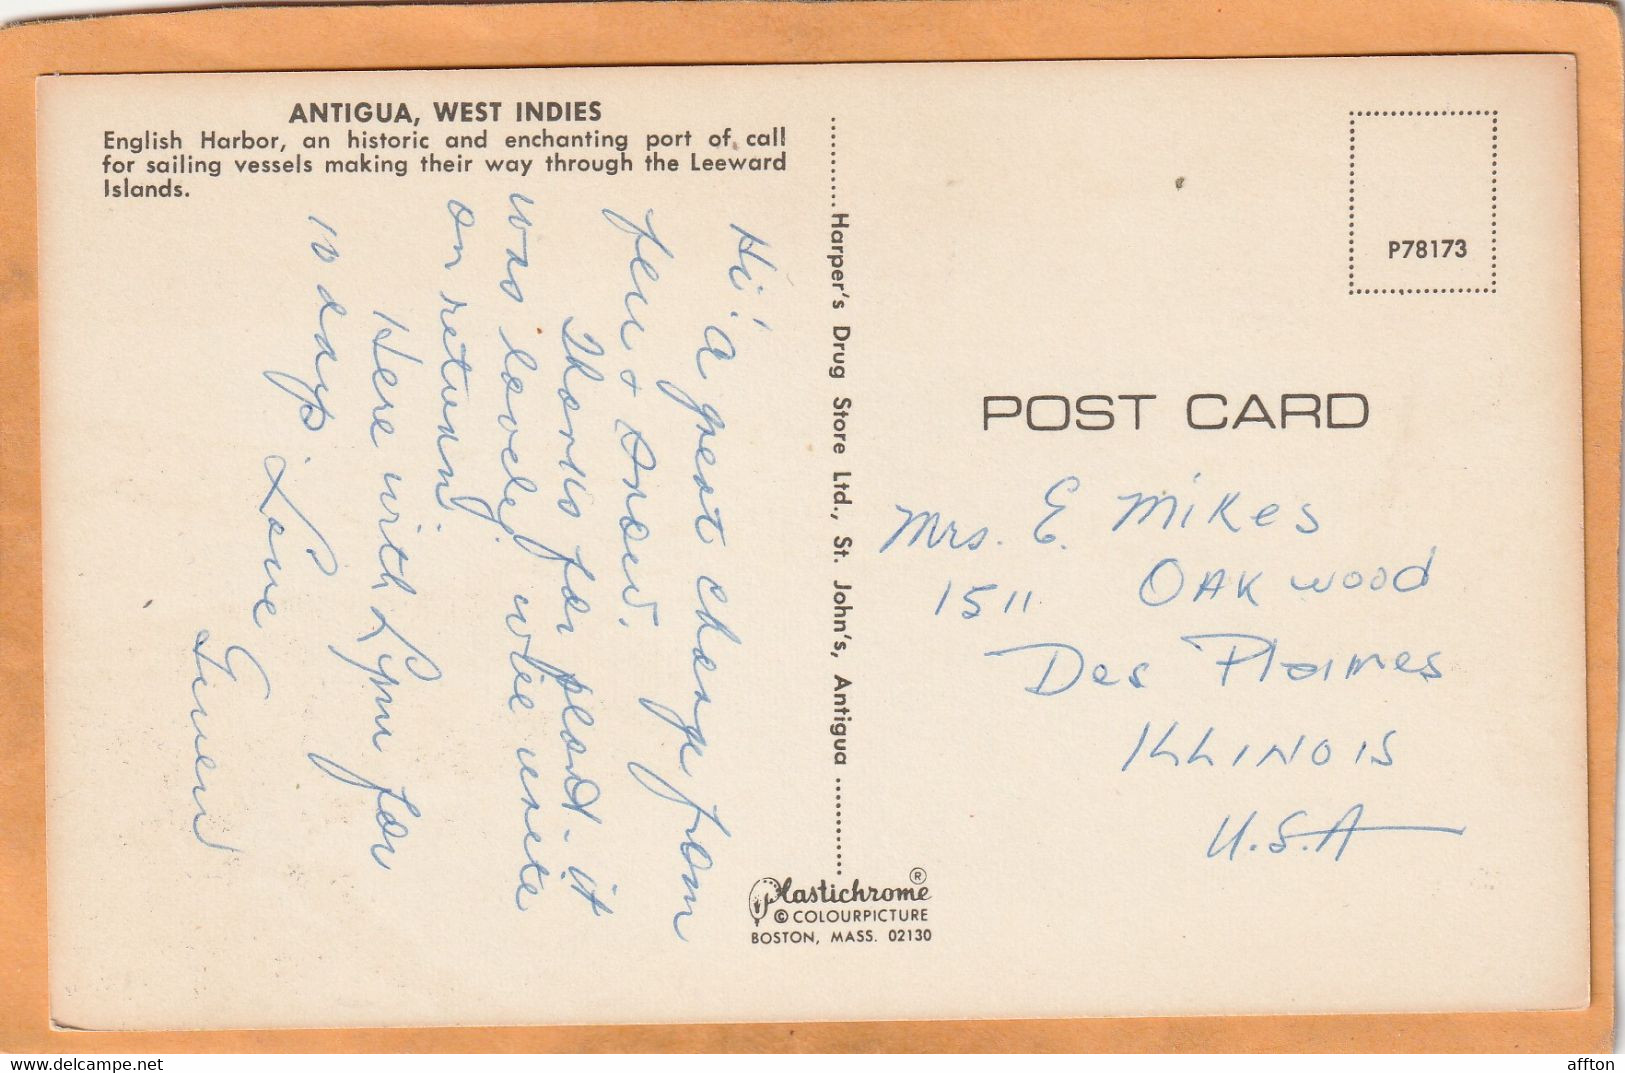 ANTIGUA, WEST INDIES
English Harbor, an historic and enchanting port of call
for sailing vessels making their way through the Leeward
Islands.
Hi! A great change from
+ Snow.
Thanks for plant - it
was lovely, will write
on return
Here with Lynn for
10 days.
Love
Harper's Drug Store Ltd., St. John's, Antigua
P78173
POST CARD
Mrs. E. Mikes
1511 OAKWOOD
Des Plaines
ILLINOIS
U.S.A
Plastichrome ®
© COLOURPICTURE
BOSTON, MASS. 02130
https://www.delcampe.net
affton